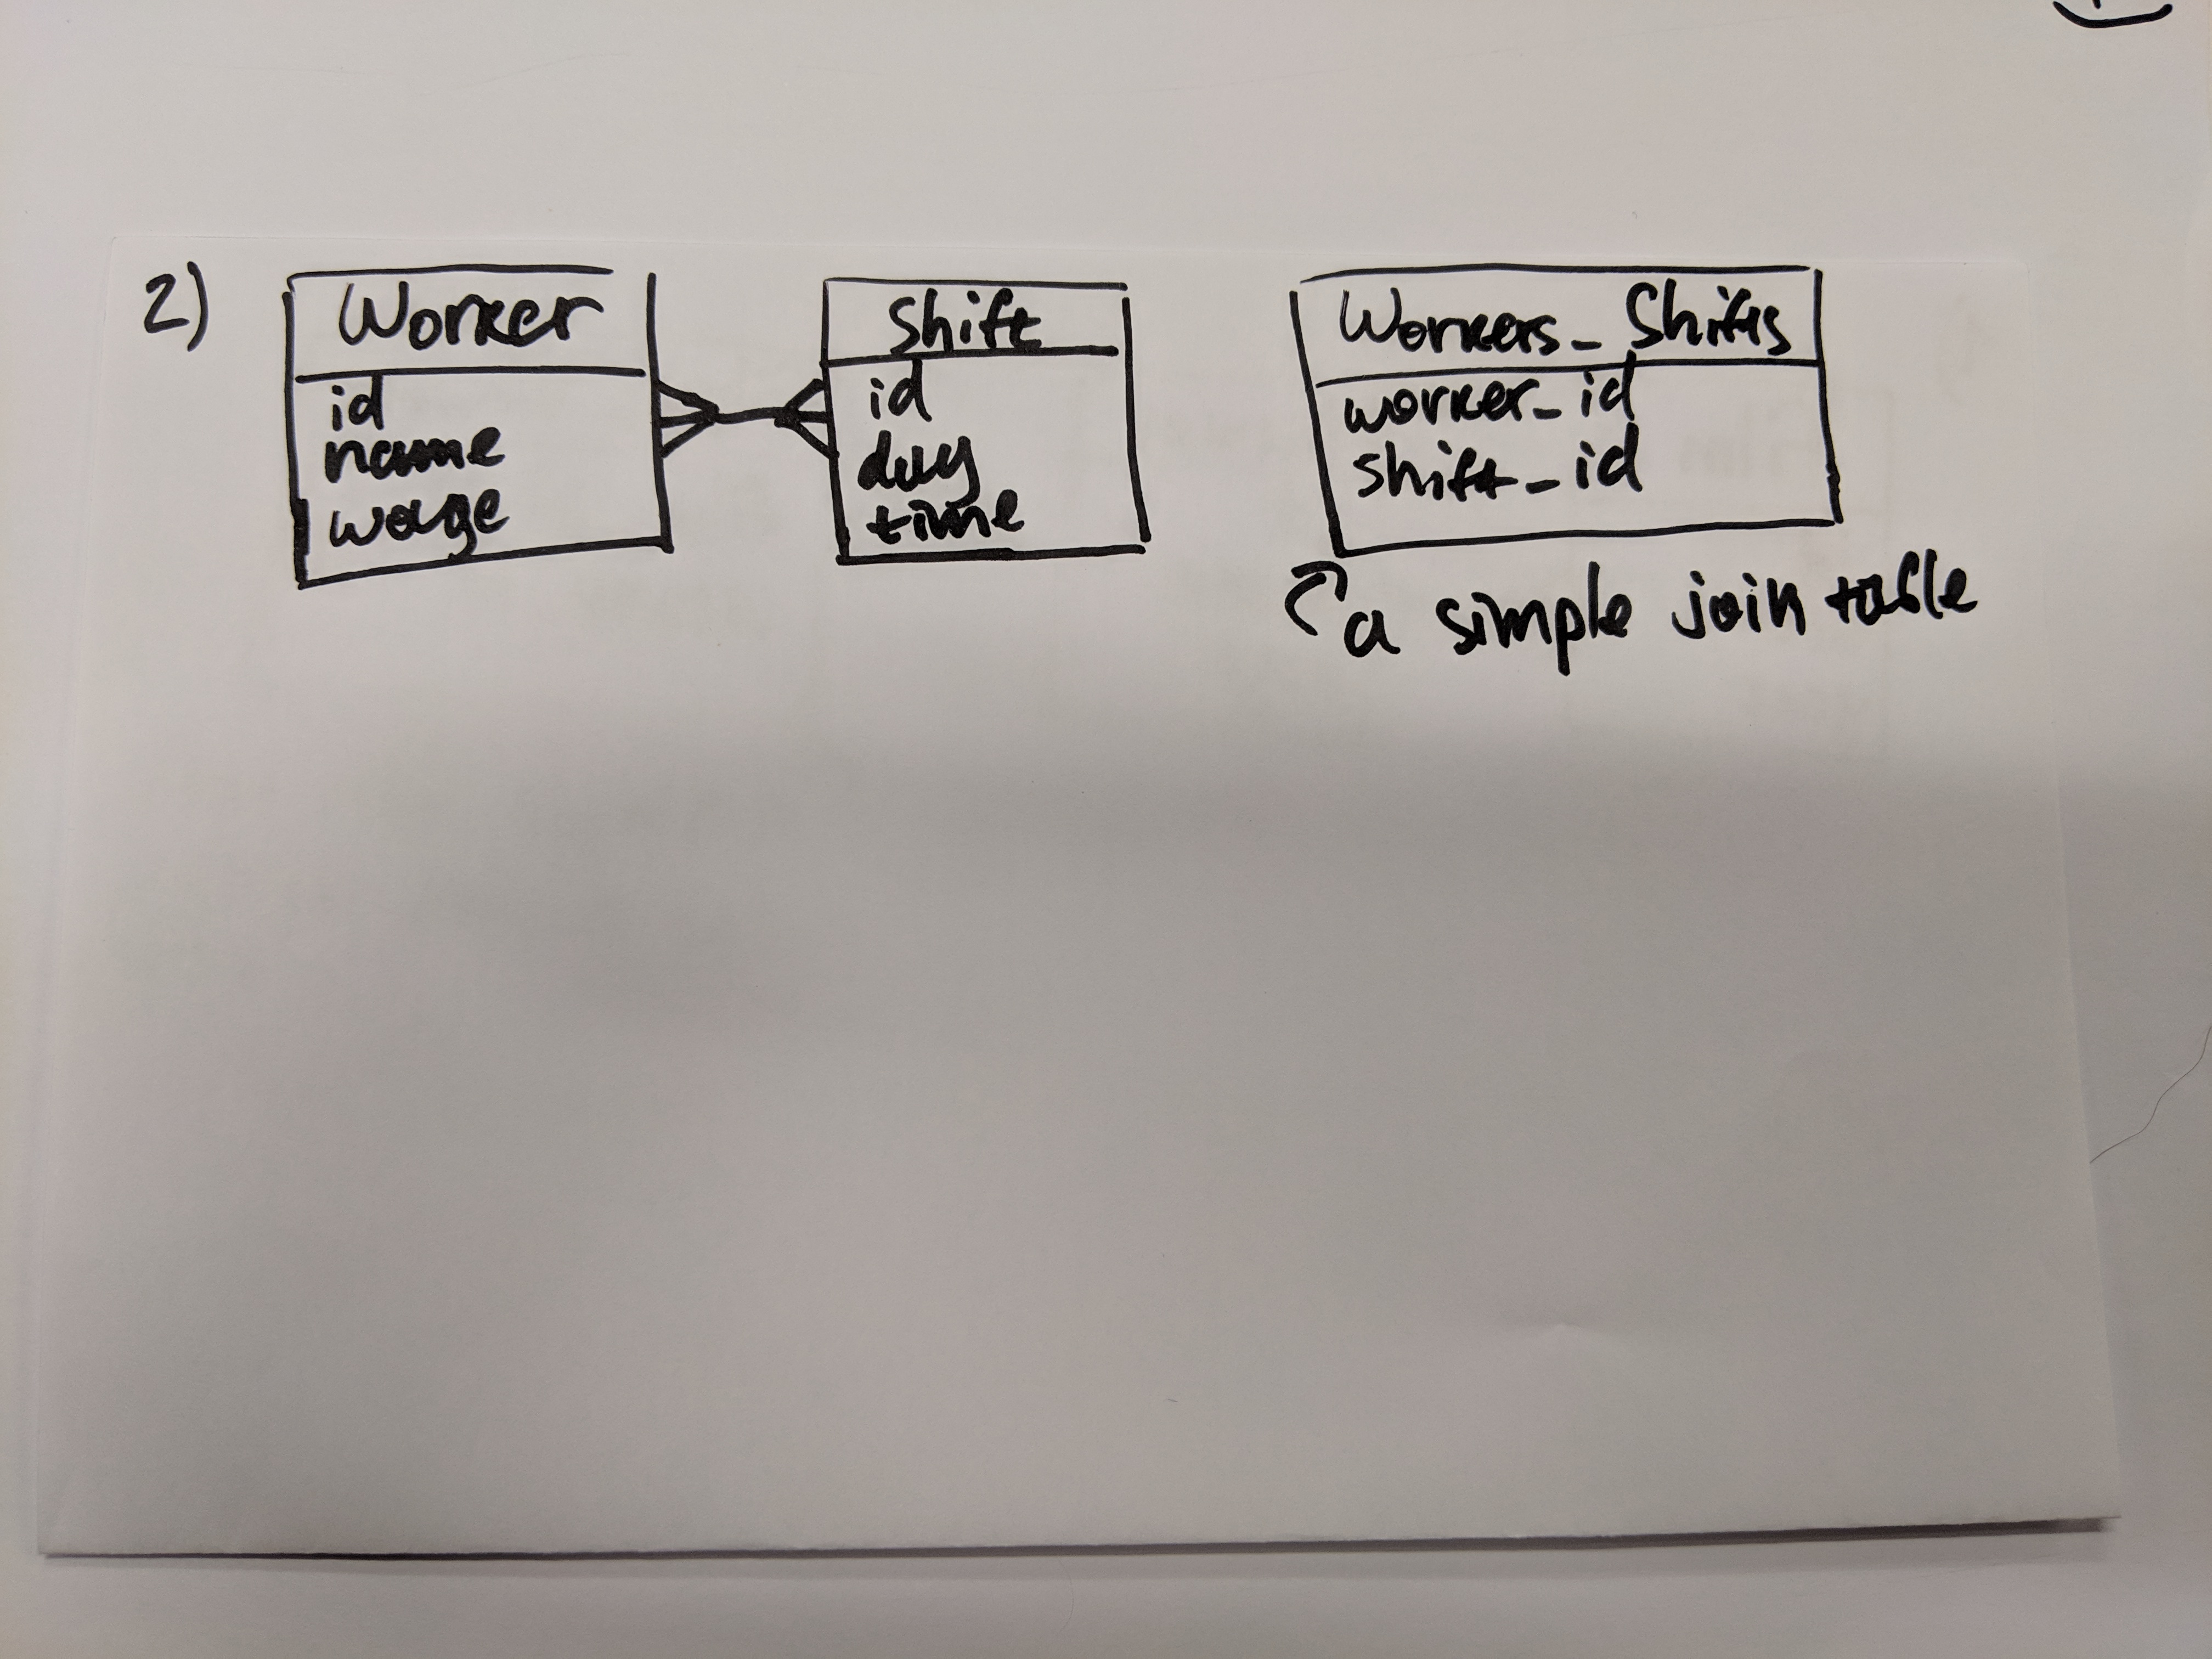 2)
Worker
id
name
wage
Shift
id
day
time
Workers_Shifts
worker_id
shift_id
a simple join table